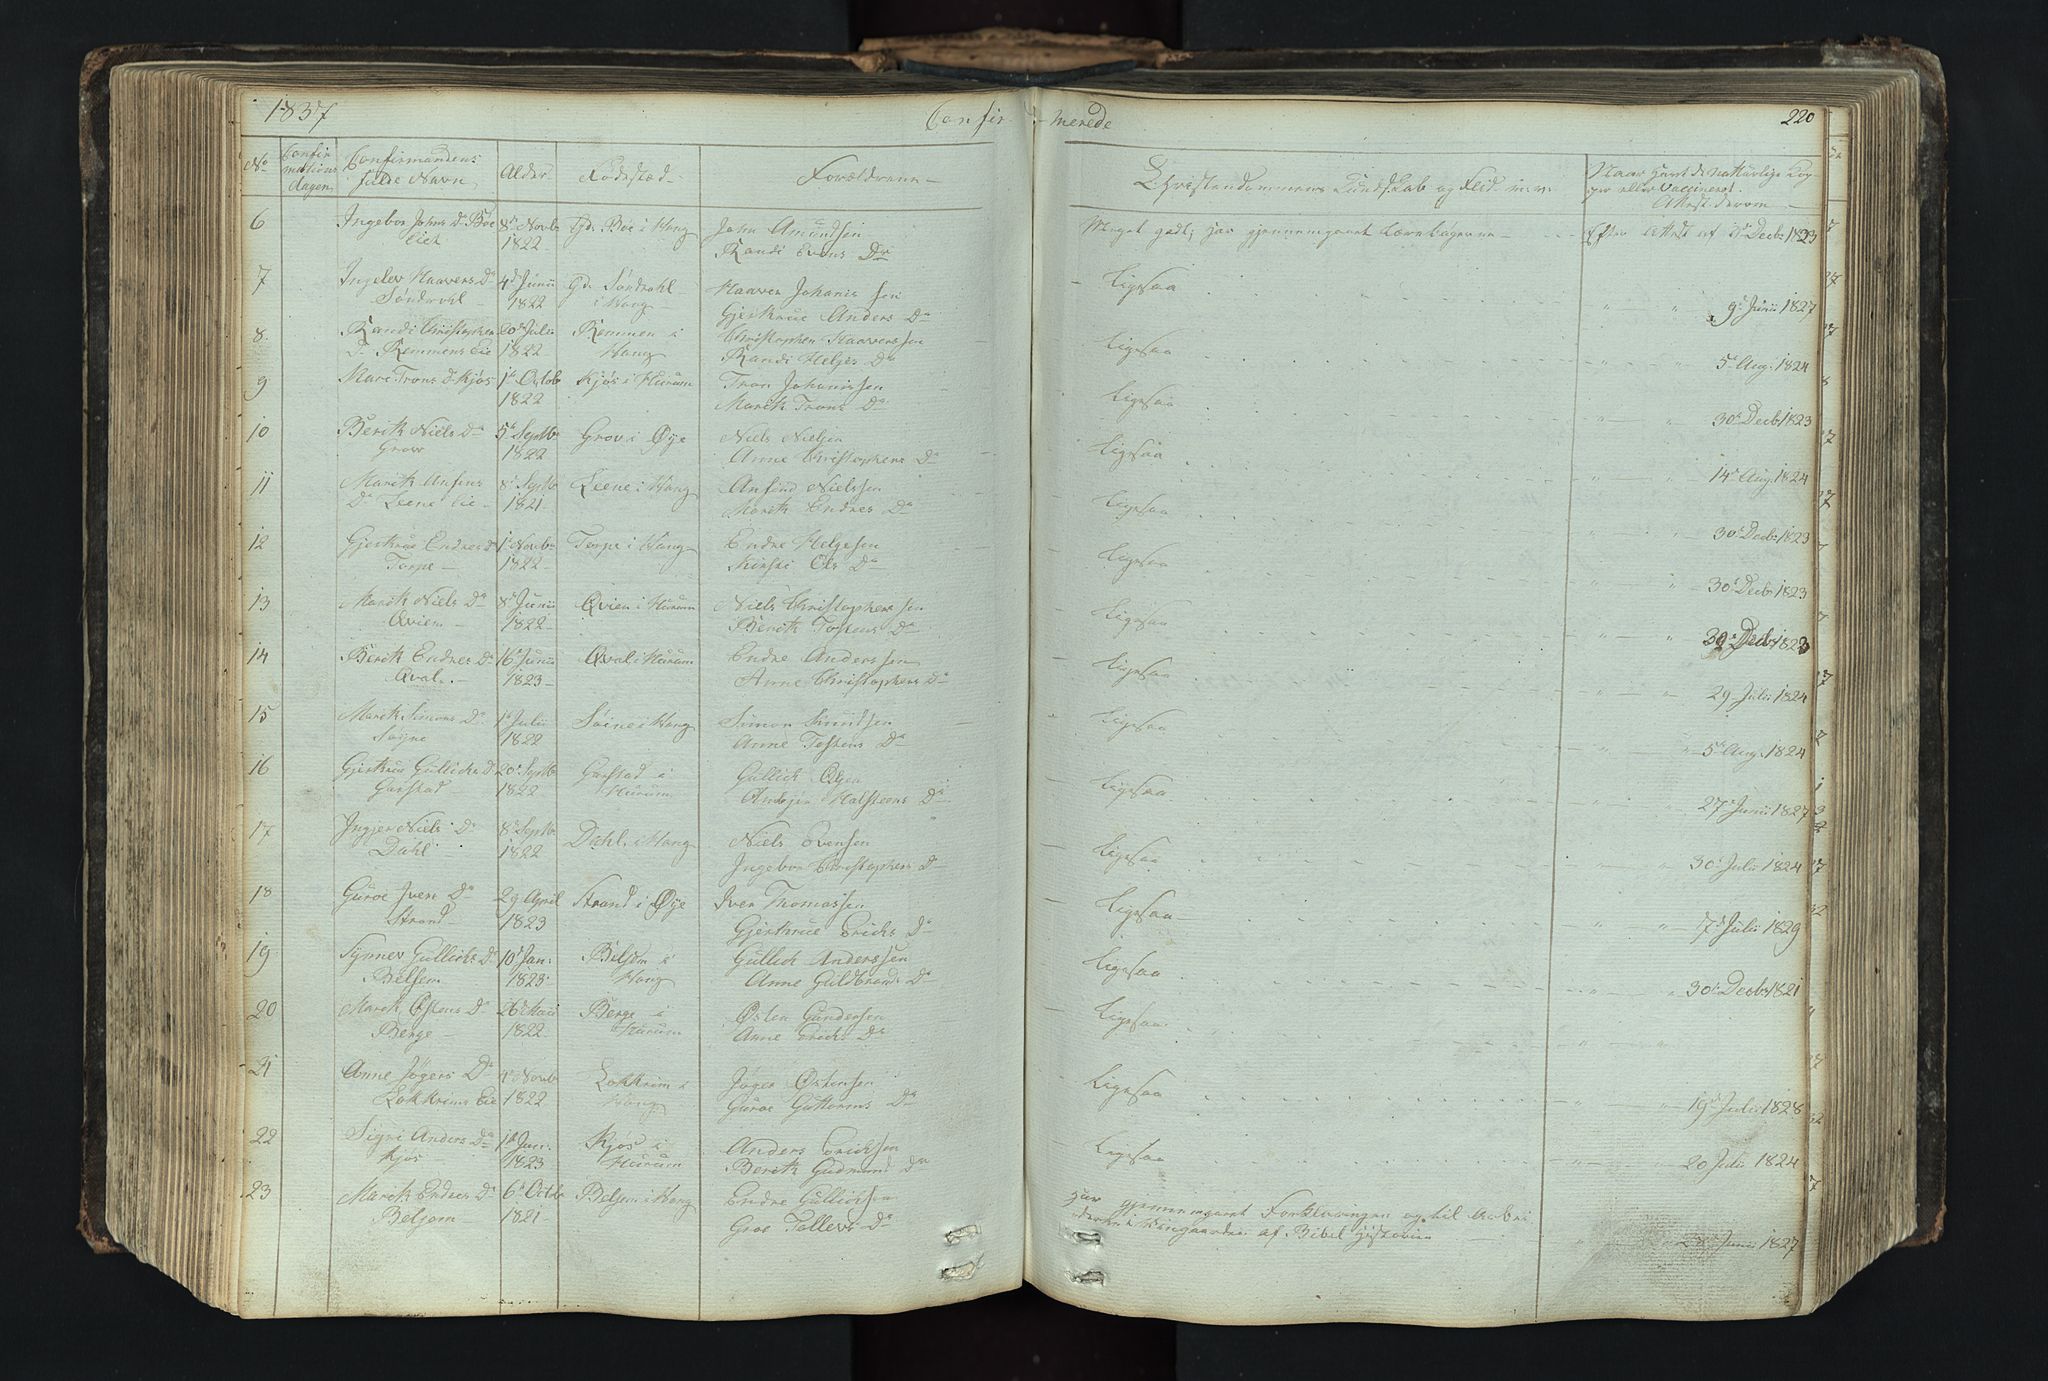 1837
Confir-
merede
220
No
Confir
mations
dagen
Confirmandens
fulde Navn
Alder
Fødested
Forældrene
Christendommens Kundskab og Flid m. v.
Naar havt de naturlige Kop-
per eller Vaccineret.
Attest derom
6
Ingebor Johns Dr Bøe
Eiet
8de Novb
1822
Gd. Bøe i Wang
John Amundsen
Randi Evens Dr
Meget godt; har gjennemgaaet Lærebøgerne
Efter Attest af Decbr 1823
7
Ingelev Haavers Dr
Søndrohl
4de Junii
1822
Gd. Søndrohl
i Wang
Haaver Johannissen
Gjertrue Anders Dr
Ligesaa
9de Junii 1827
8
Randi Christophers
Dr Remmens Eie
20de Julii
1822
Remmen i
Wang
Christopher Haaverssen
Randi Helges Dr
Ligesaa
5 Aug. 1824
9
Mari Trons Dr Kjøs
1de Octob
1822
Kjøs i Hurum
Tron Johanissen
Marit Trons Dr
Ligesaa
30 Decbr 1823
10
Berit Niels Dr
Grov
5de Septb
1822
Grov i Øye
Niels Nielsen
Anne Christophers Dr
Ligesaa
14de Aug. 1824
11
Marit Anfins
Dr Leene Eie
8de Septb
1821
Leene i Wang
Anfind Nielssen
Marit Endres Dr
Ligesaa
30de Decbr 1823
12
Gjertrue Endres Dr
Torpe
1de Novbr
1822
Torpe i Wang
Endre Helgesen
Kirsti Ols Dr
Ligesaa
30de Decbr 1823
13
Marit Niels Dr
Qvien
8de Junii
1822
Qvien i Hurum
Niels Christophersen
Berit Tostens Dr
Ligesaa
30 Decbr 1823
14
Berit Endres Dr
Qval
16de Junii
1823
Qval i Hurum
Endre Anderssen
Anne Christophers Dr
Ligesaa
29 Julii 1824
15
Marit Simons Dr
Søyne
1de Julii
1822
Søine i Wang
Simon Knudsen
Anne Tostens Dr
Ligesaa
5de Aug. 1824
16
Gjertrue Gullichs Dr
Garstad
20de Septb
1822
Garstad i
Hurum
Gullich Olsen
Halsteens Dr
Ligesaa
27de Junii 1827
17
Ingjer Niels Dr
Dahl
8de Septb
1822
Dahl i Wang
Niels Evensen
Ingebor Christophers Dr
Ligesaa
30de Julii 1824
18
Guroe Ivers Dr
Strand
29 April
1823
Strand i Øye
Iver Thomassen
Gjertrue Erichs Dr
Ligesaa
7de Julii 1829
19
Synnev Gullichs Dr
Belsem
10de Jan:
1823
Belsem i
Wang
Gullich Anderssen
Anne Guldbrands Dr
Ligesaa
30de Decbr 1821
20
Marit Østens Dr
Berge
26de Maii
1822
Berge i
Hurum
Østen Gundersen
Anne Erichs Dr
Ligesaa
21
Anne Jøgers Dr
Lokkrims Eie
1de Novb
1822
Lokkrim i
Wang
Jøger Østensen
Guroe Guttorms Dr
Ligesaa
19de Julii 1828
22
Sigri Anders Dr
Kjøs
1de Jan:
1823
Kjøs i
Hurum
Anders Erichssen
Berit Gudmund Dr
Ligesaa
20 Julii 1824
23
Marit Endres Dr
Belsem
6de Octb
1821
Belsem i Wang
Endre Gullichsen
Groe Tollevs Dr
Har gjennemgaaet Forklaringen og til Arbei
derne i Viingaarden af Bibel Historien
Junii 1827